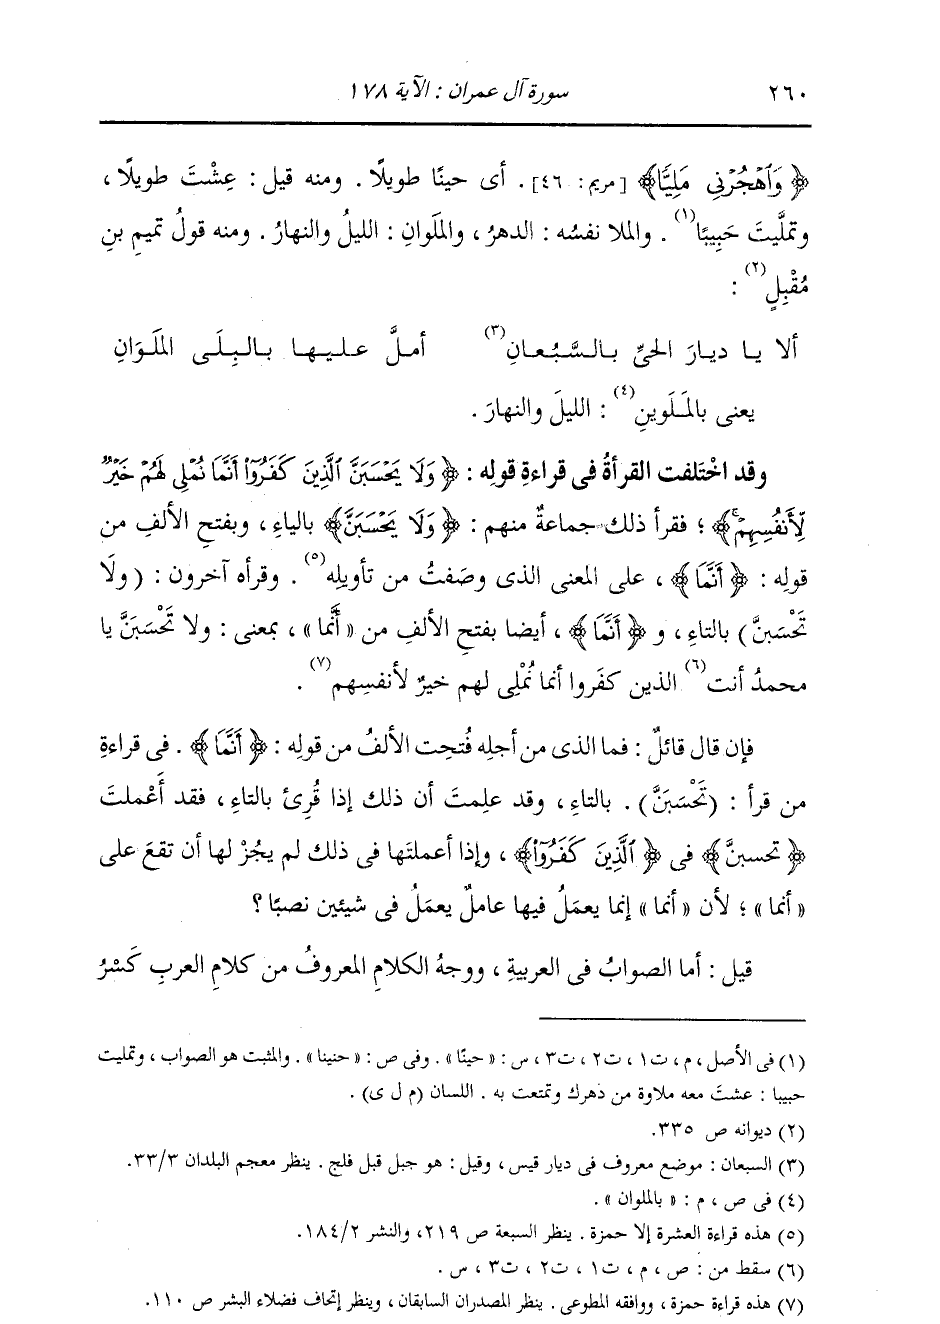 ٢٦٠ سورة آل عمران : الآية ١٧٨
﴿ وَٱهْجُرْنِى مَلِيًّا﴾ [مريم: ٤٦]. أى حينًا طويلًا . ومنه قيل : عِشْتَ طويلًا ،
وتملَّيتَ حَبِيبًا(١) . والملا نفسُه : الدهرُ ، والملَوانِ : الليلُ والنهارُ . ومنه قولُ تميمِ بنِ
مُقْبِلٍ(٢) :
ألا يا ديارَ الحىِّ بالسَّبُعانِ(٣) أملَّ عليها بالبِلَى الملَوَانِ
يعنى بالملَوينِ(٤) : الليلَ والنهارَ .
وقد اخْتَلفت القرأةُ فى قراءةِ قولِه : ﴿ وَلَا يَحْسَبَنَّ ٱلَّذِينَ كَفَرُوٓا۟ أَنَّمَا نُمْلِى لَهُمْ خَيْرٌ
لِّأَنفُسِهِمْۚ﴾ ؛ فقرأ ذلك جماعةٌ منهم : ﴿ وَلَا يَحْسَبَنَّ﴾ بالياءِ ، وبفتحِ الألفِ من
قولِه : ﴿ أَنَّمَا ﴾ ، على المعنى الذى وصَفتُ من تأويلِه(٥) . وقرأه آخرون : ( ولَا
تَحْسَبنَّ ) بالتاءِ ، و ﴿ أَنَّمَا ﴾ ، أيضا بفتحِ الألفِ من « أنَّما » ، بمعنى : ولا تَحْسَبَنَّ يا
محمدُ أنت(٦) الذين كفَروا أنما نُمْلِى لهم خيرٌ لأنفسِهم(٧) .
فإن قال قائلٌ : فما الذى من أجلِه فُتحِت الألفُ من قولِه : ﴿ أَنَّمَا ﴾ . فى قراءةِ
من قرأ : (تَحْسَبَنَّ) . بالتاءِ ، وقد علِمتَ أن ذلك إذا قُرِئ بالتاءِ ، فقد أَعْملتَ
﴿ تحسبنَّ ﴾ فى ﴿ ٱلَّذِينَ كَفَرُوٓا۟﴾ ، وإذا أعملتَها فى ذلك لم يجُزْ لها أن تقعَ على
« أنما » ؛ لأن « أنما » إنما يعمَلُ فيها عاملٌ يعمَلُ فى شيئين نصبًا ؟
قيل : أما الصوابُ فى العربيةِ ، ووجهُ الكلامِ المعروفُ من كلامِ العربِ كَسْرُ
(١) فى الأصل ، م ، ت١ ، ت٢ ، ت٣ ، س : « حينًا » . وفى ص : « حنينا » . والمثبت هو الصواب ، وتمليت
حبيبا : عشتَ معه ملاوة من دَهرك وتمتعت به . اللسان (م ل ى) .
(٢) ديوانه ص ٣٣٥.
(٣) السبعان : موضع معروف فى ديار قيس ، وقيل : هو جبل قبل فلج . ينظر معجم البلدان ٣٣/٣.
(٤) فى ص ، م : « بالملوان » .
(٥) هذه قراءة العشرة إلا حمزة . ينظر السبعة ص ٢١٩، والنشر ١٨٤/٢.
(٦) سقط من : ص ، م ، ت١ ، ت٢ ، ت٣ ، س .
(٧) هذه قراءة حمزة ، ووافقه المطوعى . ينظر المصدران السابقان ، وينظر إتحاف فضلاء البشر ص ١١٠.